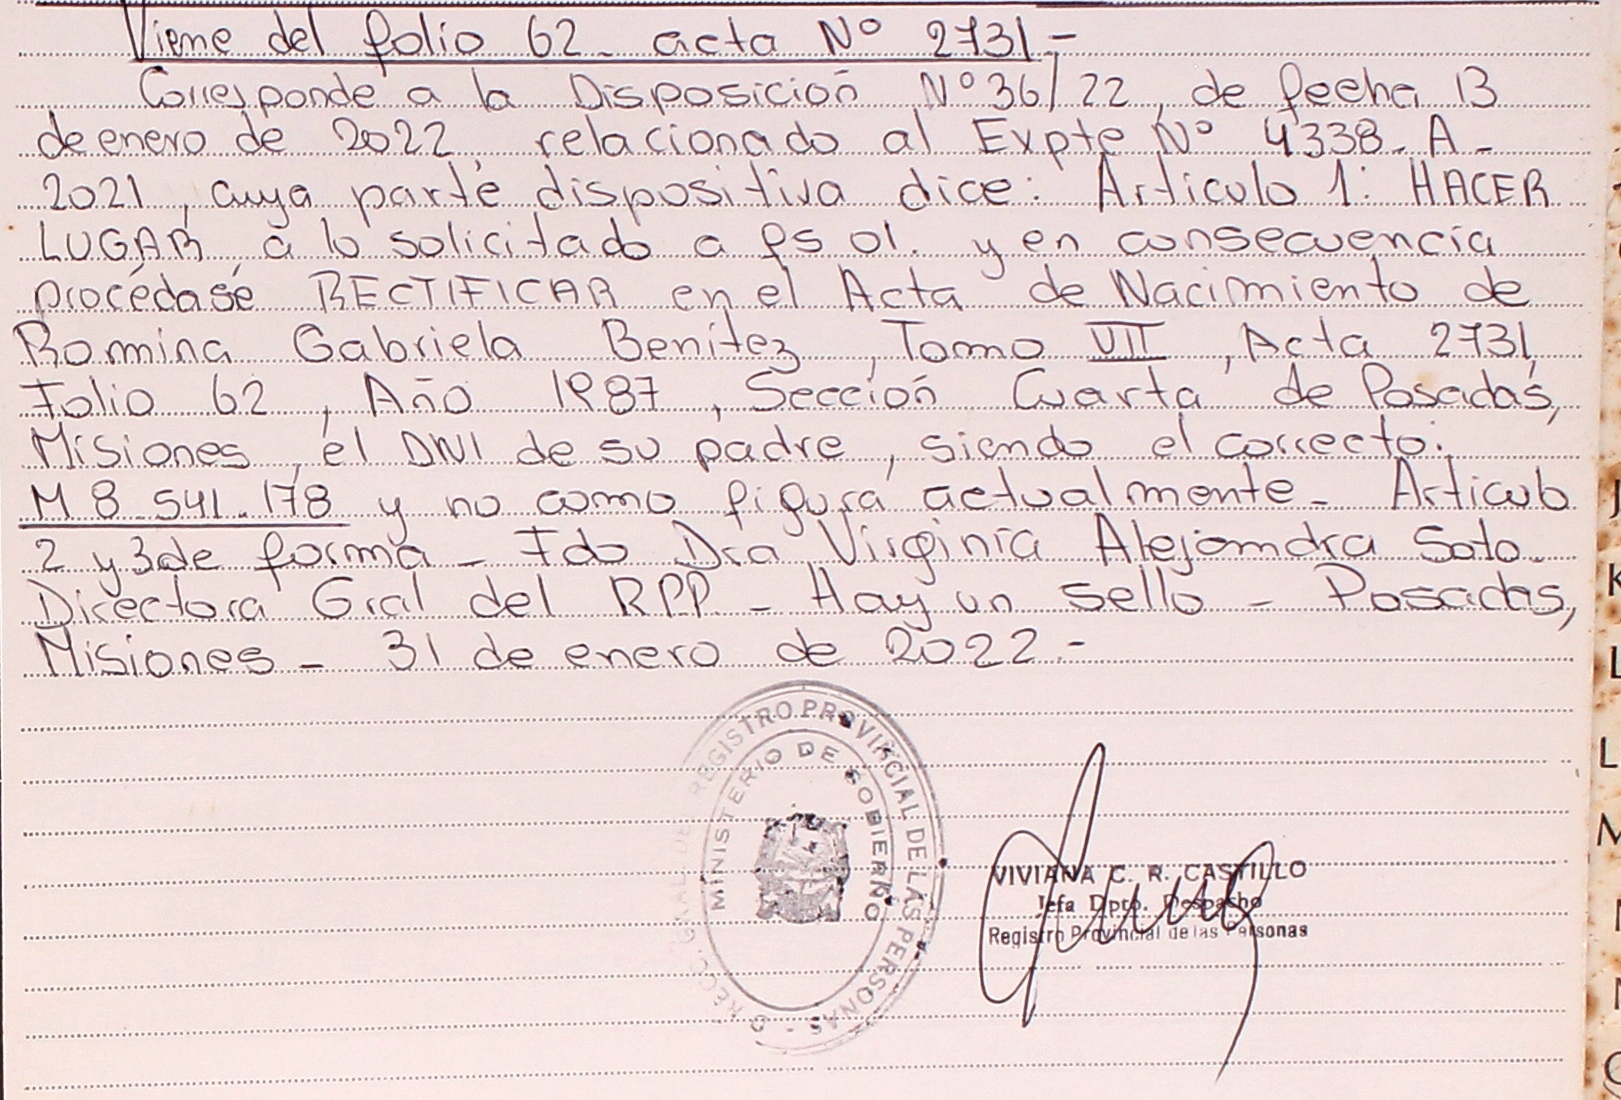 Viene del folio 62 - acta Nº 2731.-
Corresponde a la Disposición Nº 36/22, de fecha 13
de enero de 2022, relacionado al Expte Nº 4338-A-
2021, cuya parte dispositiva dice: Artículo 1: HACER
LUGAR a lo solicitado a fs 01. y en consecuencia
procédase RECTIFICAR en el Acta de Nacimiento de
Romina Gabriela Benítez, Tomo VII, Acta 2731,
Folio 62, Año 1987, Sección Cuarta de Posadas,
Misiones, el DNI de su padre, siendo el correcto:
M 8.541.178 y no como figura actualmente - Artículo
2 y 3 de forma - Fdo Dra Virginia Alejandra Soto -
Directora Gral del RPP - Hay un sello - Posadas,
Misiones - 31 de enero de 2022.-
REGISTRO PROVINCIAL DE LAS PERSONAS
MINISTERIO DE GOBIERNO
VIVIANA C. R. CASTILLO
Jefa Dpto. Despacho
Registro Provincial de las Personas
J
K
L
L
M
N